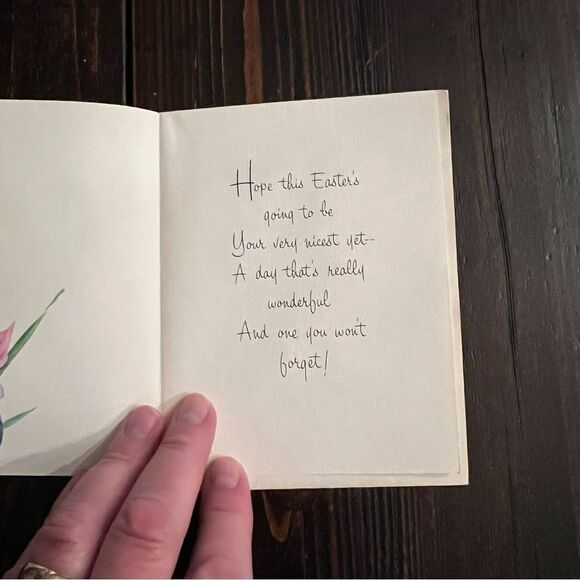 Hope this Easter's
going to be
Your very nicest yet--
A day that's really
wonderful
And one you won't
forget!